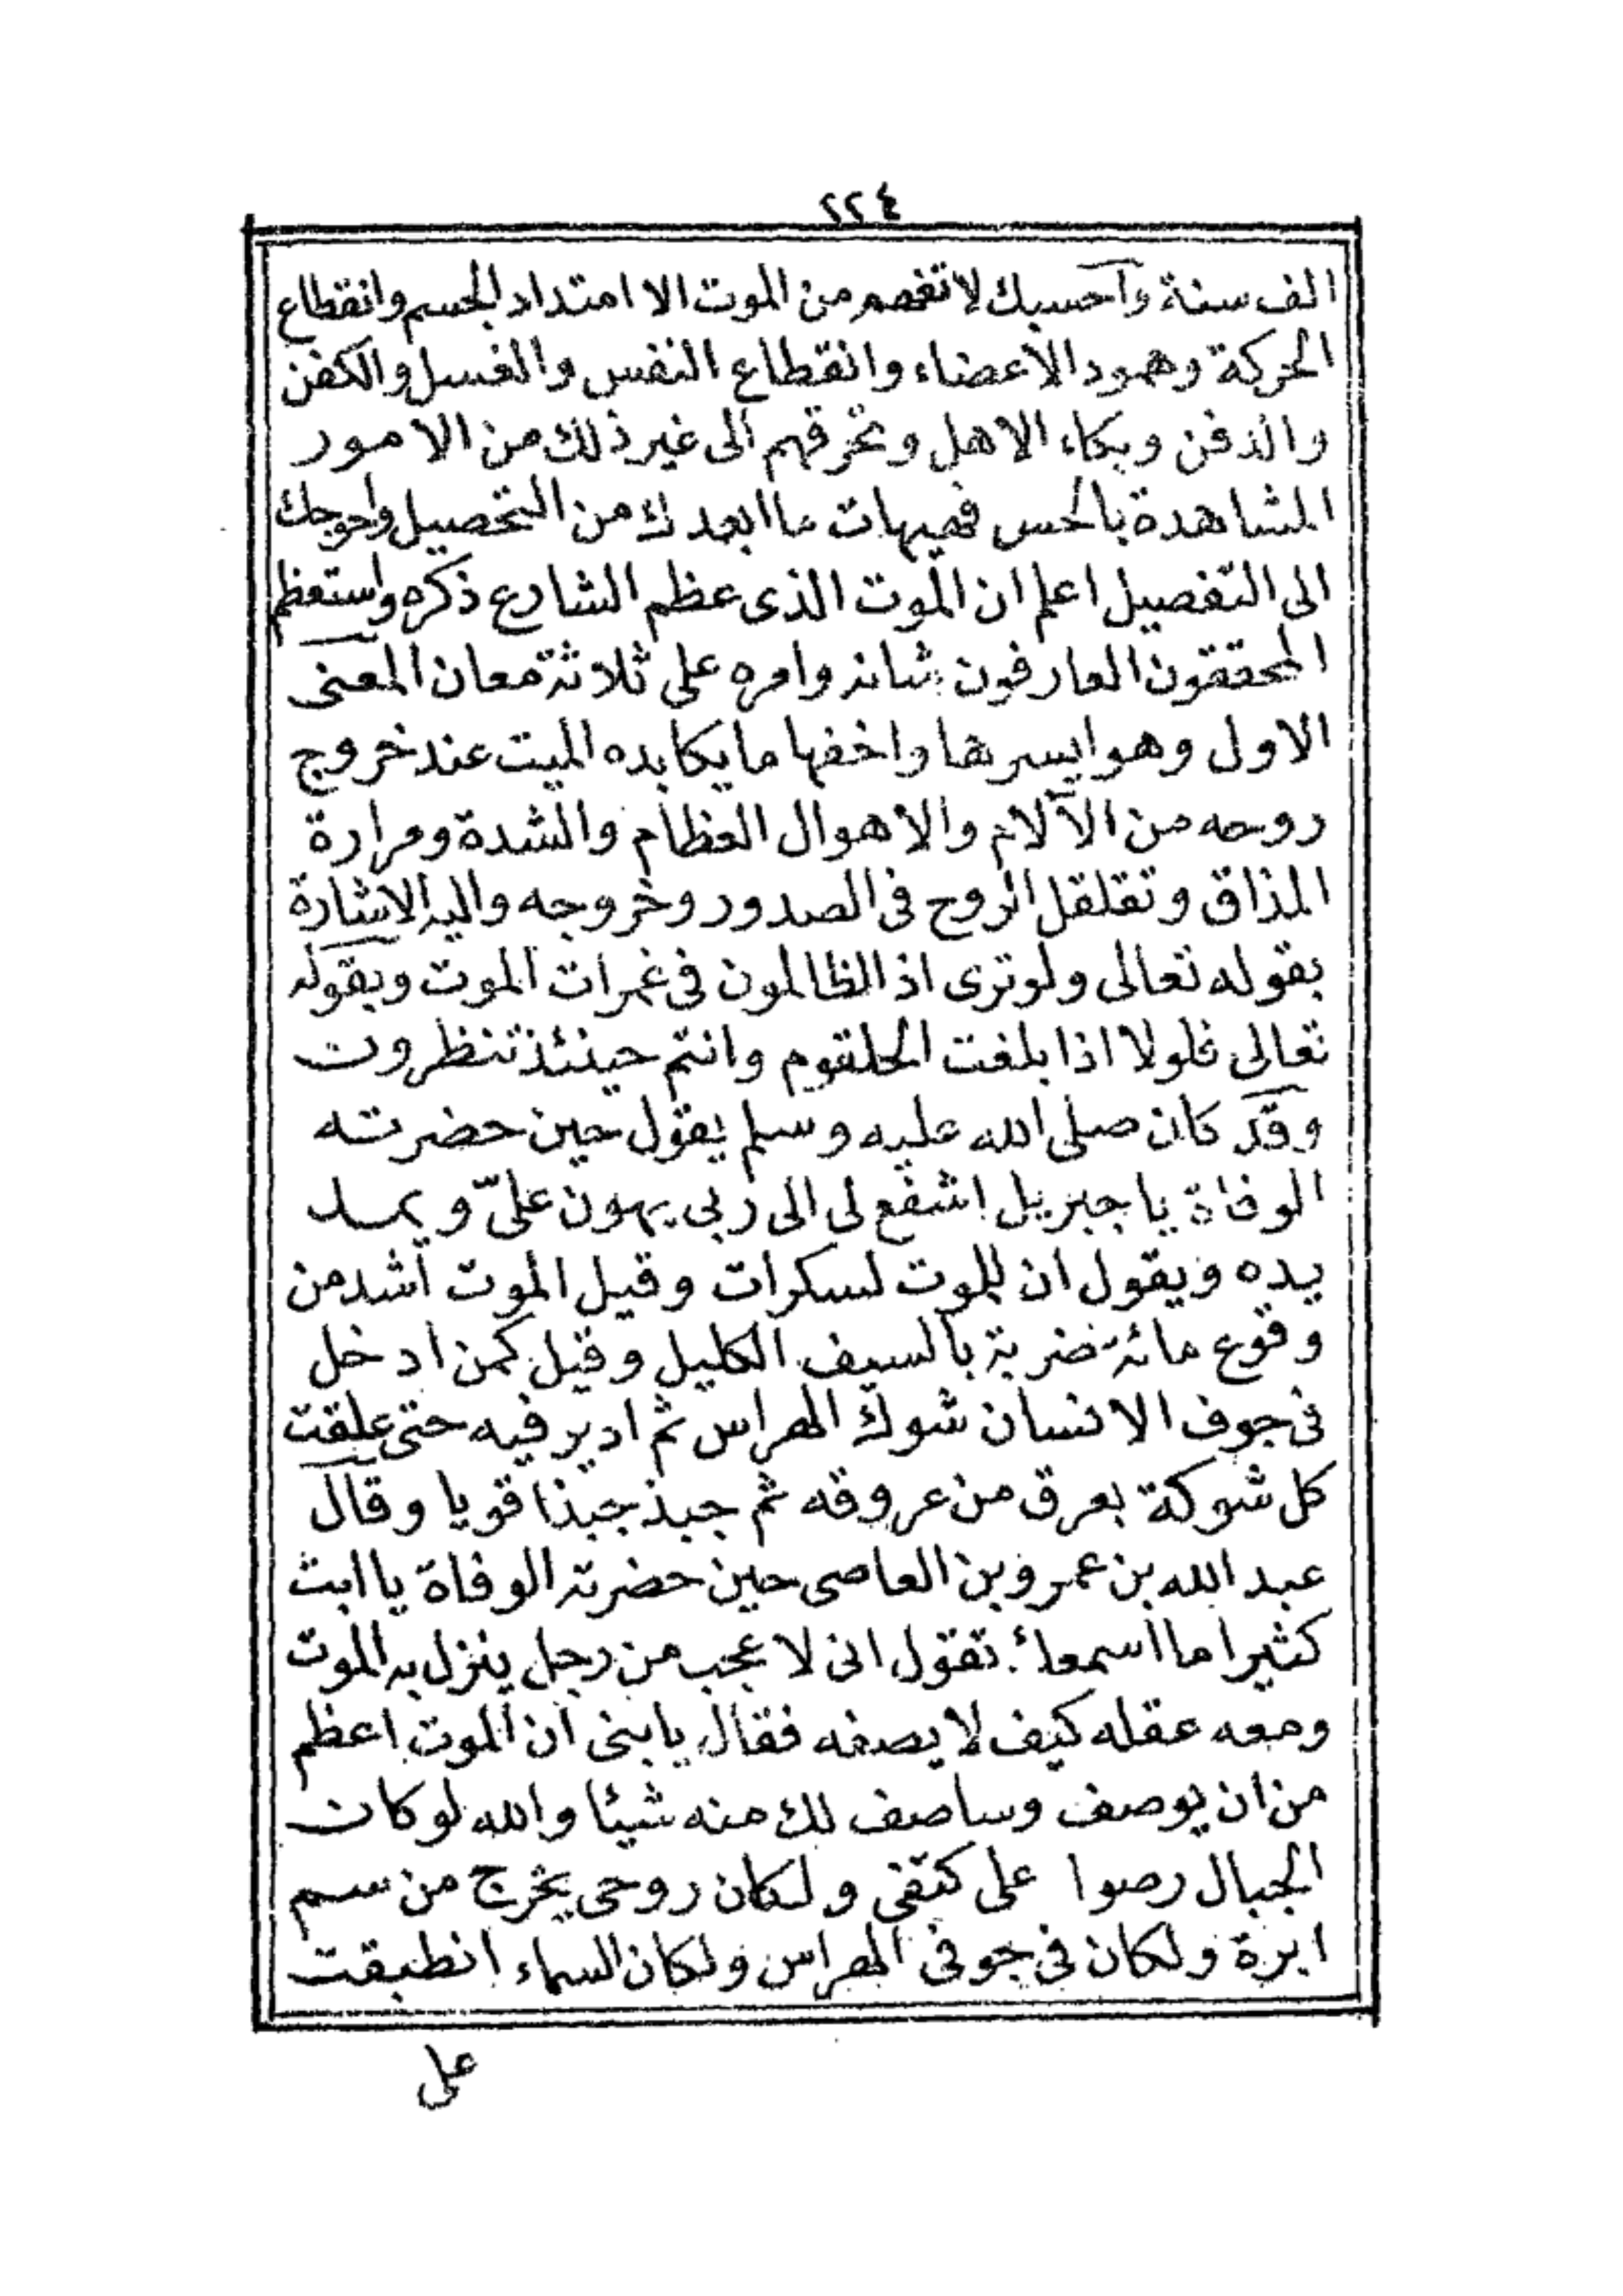 ٢٢٤
الف سنة واحسبك لا تفهم من الموت الا امتداد الجسم وانقطاع
الحركة وهمود الاعضاء وانقطاع النفس والغسل والكفن
والدفن وبكاء الاهل وتحرقهم الى غير ذلك من الامور
المشاهدة بالحس فهيهات ما ابعدك من التحصيل واحوجك
الى التفصيل اعلم ان الموت الذى عظم الشارع ذكره واستعظم
المحققون العارفون شانه وامره على ثلاثة معان المعنى
الاول وهو ايسرها واخفها ما يكابده الميت عند خروج
روحه من الآلام والاهوال العظام والشدة ومرارة
المذاق وتقلقل الروح فى الصدور وخروجه واليه الاشارة
بقوله تعالى ولو ترى اذ الظالمون فى غمرات الموت وبقوله
تعالى فلولا اذا بلغت الحلقوم وانتم حينئذ تنظرون
وقد كان صلى الله عليه وسلم يقول حين حضرته
الوفاة يا جبريل اشفع لى الى ربى يهون علىّ ويمد
يده ويقول ان للموت لسكرات وقيل الموت اشد من
وقوع مائة ضربة بالسيف الكليل وقيل كمن ادخل
فى جوف الانسان شوك الهراس ثم ادير فيه حتى علقت
كل شوكة بعرق من عروقه ثم جبذ جبذا قويا وقال
عبد الله بن عمرو بن العاصى حين حضرته الوفاة يا ابت
كثيرا ما اسمعك تقول انى لا عجب من رجل ينزل به الموت
ومعه عقله كيف لا يصفه فقال يا بنى ان الموت اعظم
من ان يوصف وساصف لك منه شيئا والله لو كان
الجبال رصوا على كتفى ولكان روحى يخرج من سم
ابرة ولكان فى جوفى الهراس ولكان السماء انطبقت
على